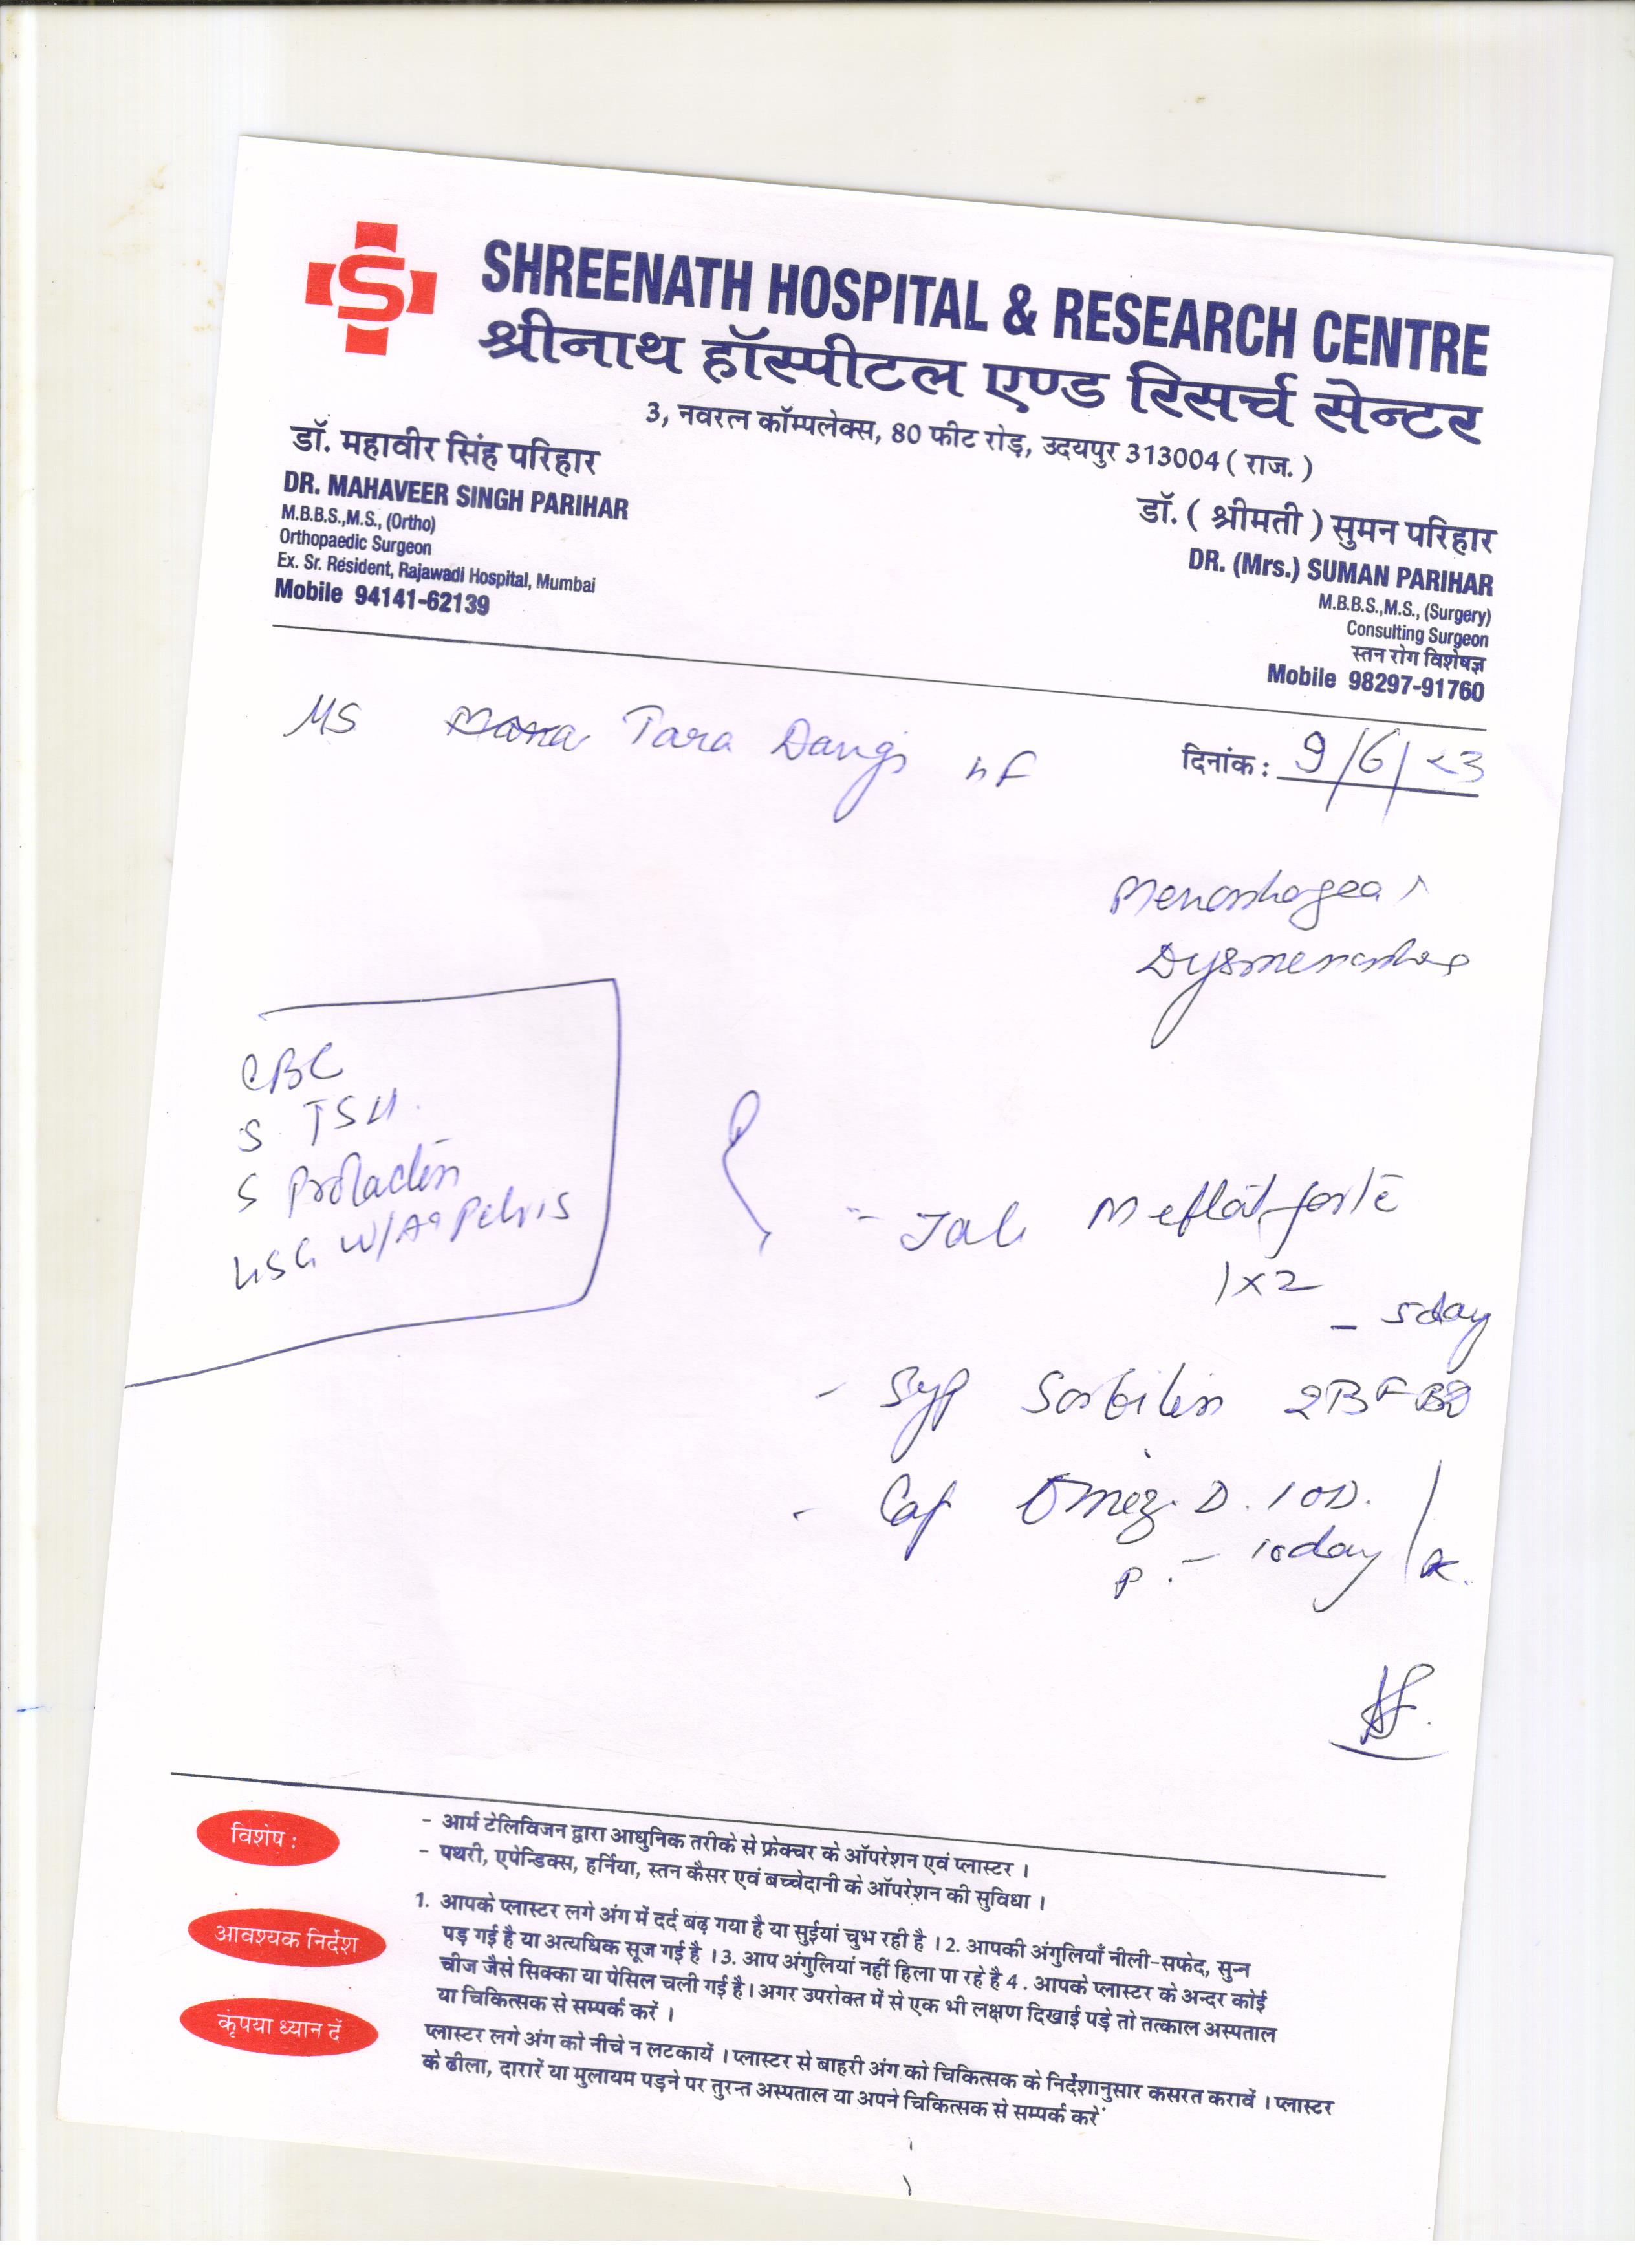 SHREENATH HOSPITAL & RESEARCH CENTRE
श्रीनाथ हॉस्पीटल एण्ड रिसर्च सेन्टर
3, नवरत्न कॉम्पलेक्स, 80 फीट रोड़, उदयपुर 313004 ( राज. )
डॉ. महावीर सिंह परिहार
DR. MAHAVEER SINGH PARIHAR
M.B.B.S.,M.S., (Ortho)
Orthopaedic Surgeon
Ex. Sr. Resident, Rajawadi Hospital, Mumbai
Mobile 94141-62139
डॉ. ( श्रीमती ) सुमन परिहार
DR. (Mrs.) SUMAN PARIHAR
M.B.B.S.,M.S., (Surgery)
Consulting Surgeon
स्तन रोग विशेषज्ञ
Mobile 98297-91760
MS Tara Dangi
दिनांक : 9/6/23
CBC
S TSH
S Prolactin
USG W/A Pelvis
- Tab Meflat forte
1x2
- 5day
- Syp Sorbilin
- Cap Omez D. 1 OD.
- 10day
विशेष :
- आर्म टेलिविजन द्वारा आधुनिक तरीके से फ्रेक्चर के ऑपरेशन एवं प्लास्टर ।
- पथरी, एपेन्डिक्स, हर्निया, स्तन कैसर एवं बच्चेदानी के ऑपरेशन की सुविधा ।
आवश्यक निर्देश
1. आपके प्लास्टर लगे अंग में दर्द बढ़ गया है या सुईयां चुभ रही है । 2. आपकी अंगुलियाँ नीली-सफेद, सुन्न
पड़ गई है या अत्यधिक सूज गई है । 3. आप अंगुलियां नहीं हिला पा रहे है 4 . आपके प्लास्टर के अन्दर कोई
चीज जैसे सिक्का या पेसिल चली गई है। अगर उपरोक्त में से एक भी लक्षण दिखाई पड़े तो तत्काल अस्पताल
या चिकित्सक से सम्पर्क करें ।
कृंपया ध्यान दें
प्लास्टर लगे अंग को नीचे न लटकायें । प्लास्टर से बाहरी अंग को चिकित्सक के निर्देशानुसार कसरत करावें । प्लास्टर
के ढीला, दारारें या मुलायम पड़ने पर तुरन्त अस्पताल या अपने चिकित्सक से सम्पर्क करें